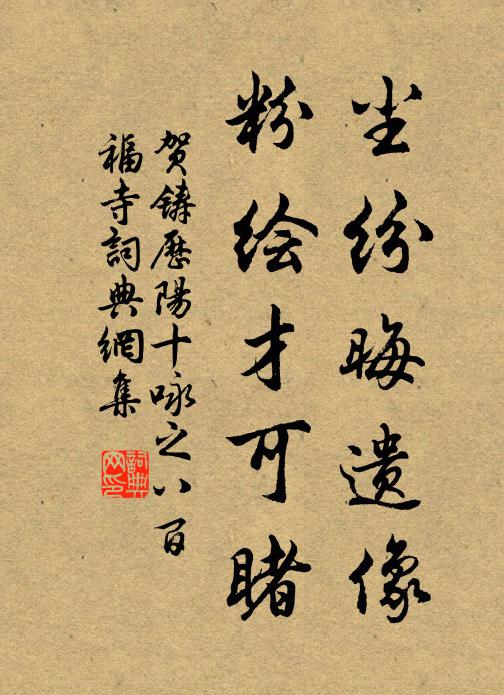 尘纷晦遗像
粉绘才可睹
贺铸历陽十咏之八百
福寺詞典網集
詞典网印